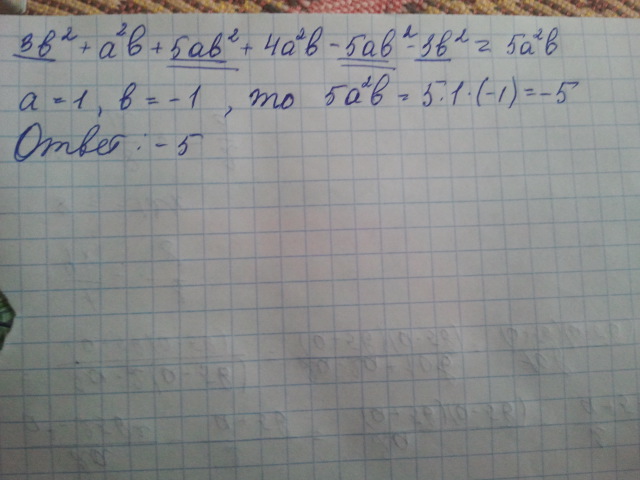 3в² + а²в + 5ав² + 4а²в - 5ав² - 3в² = 5а²в
а = 1, в = -1, то 5а²в = 5·1·(-1) = -5
Ответ: -5